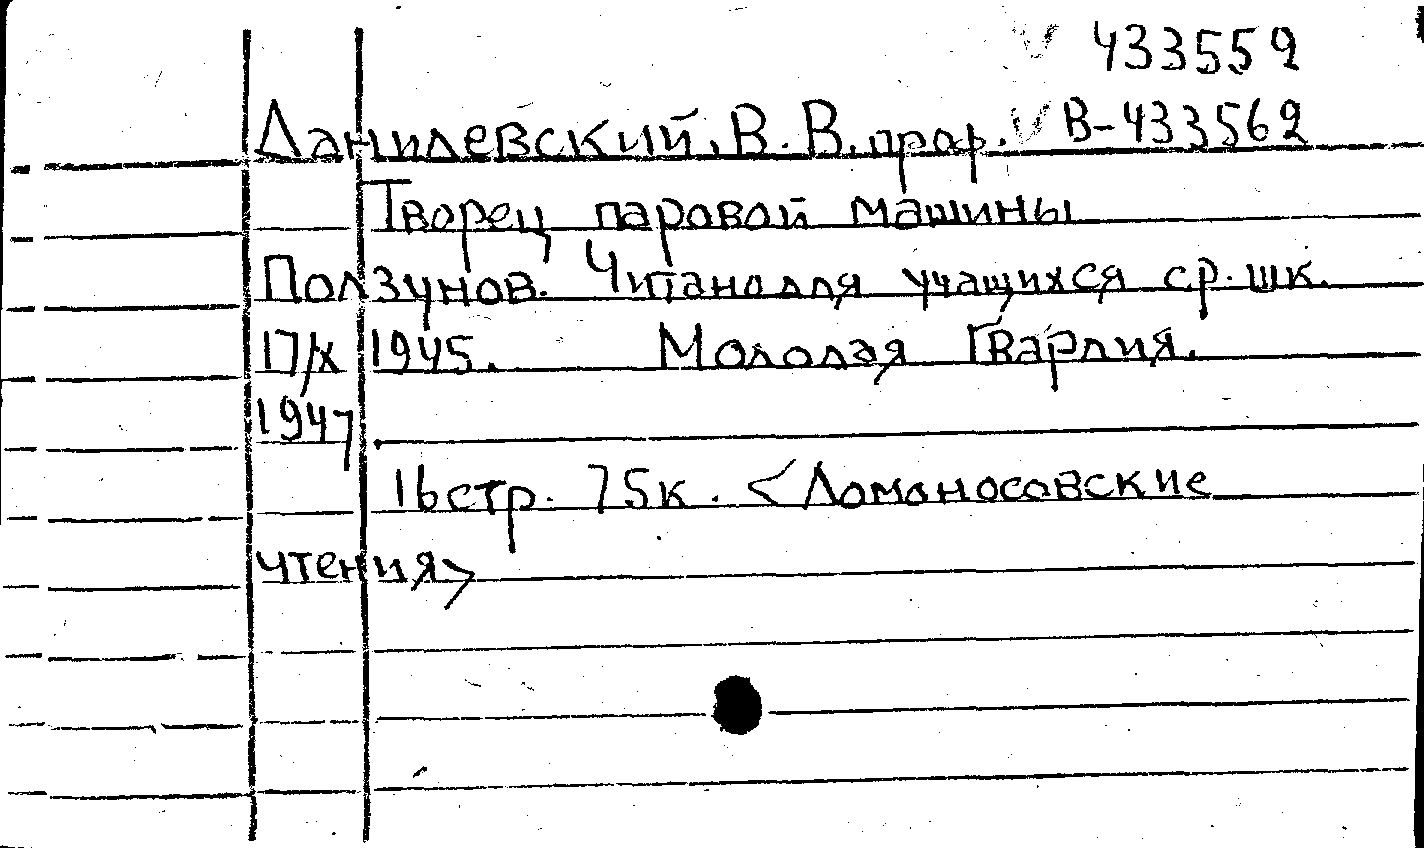 433559
Данилевский, В. В. проф. В-433562
Творец паровой машины
Ползунов. Читано для учащихся ср. шк.
17/X 1945. Молодая Гвардия.
1947
16 стр. 75 к. <Ломоносовские
чтения>